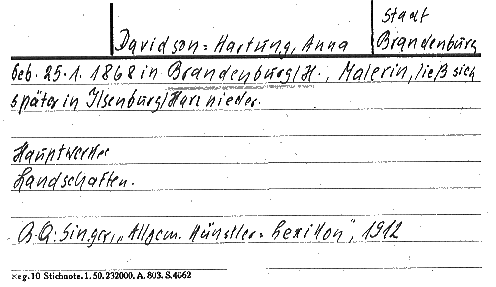 Stadt
Davidson-Hartung, Anna
Brandenburg
geb. 25.1.1868 in Brandenburg/H., Malerin, ließ sich
später in Ilsenburg/Harz nieder.
Hauptwerke:
Landschaften.
B.Q. Singer, „Allgem. Künstler-Lexikon", 1912
Reg. 10 Stichnote. 1. 50. 232000. A. 803. S. 4662